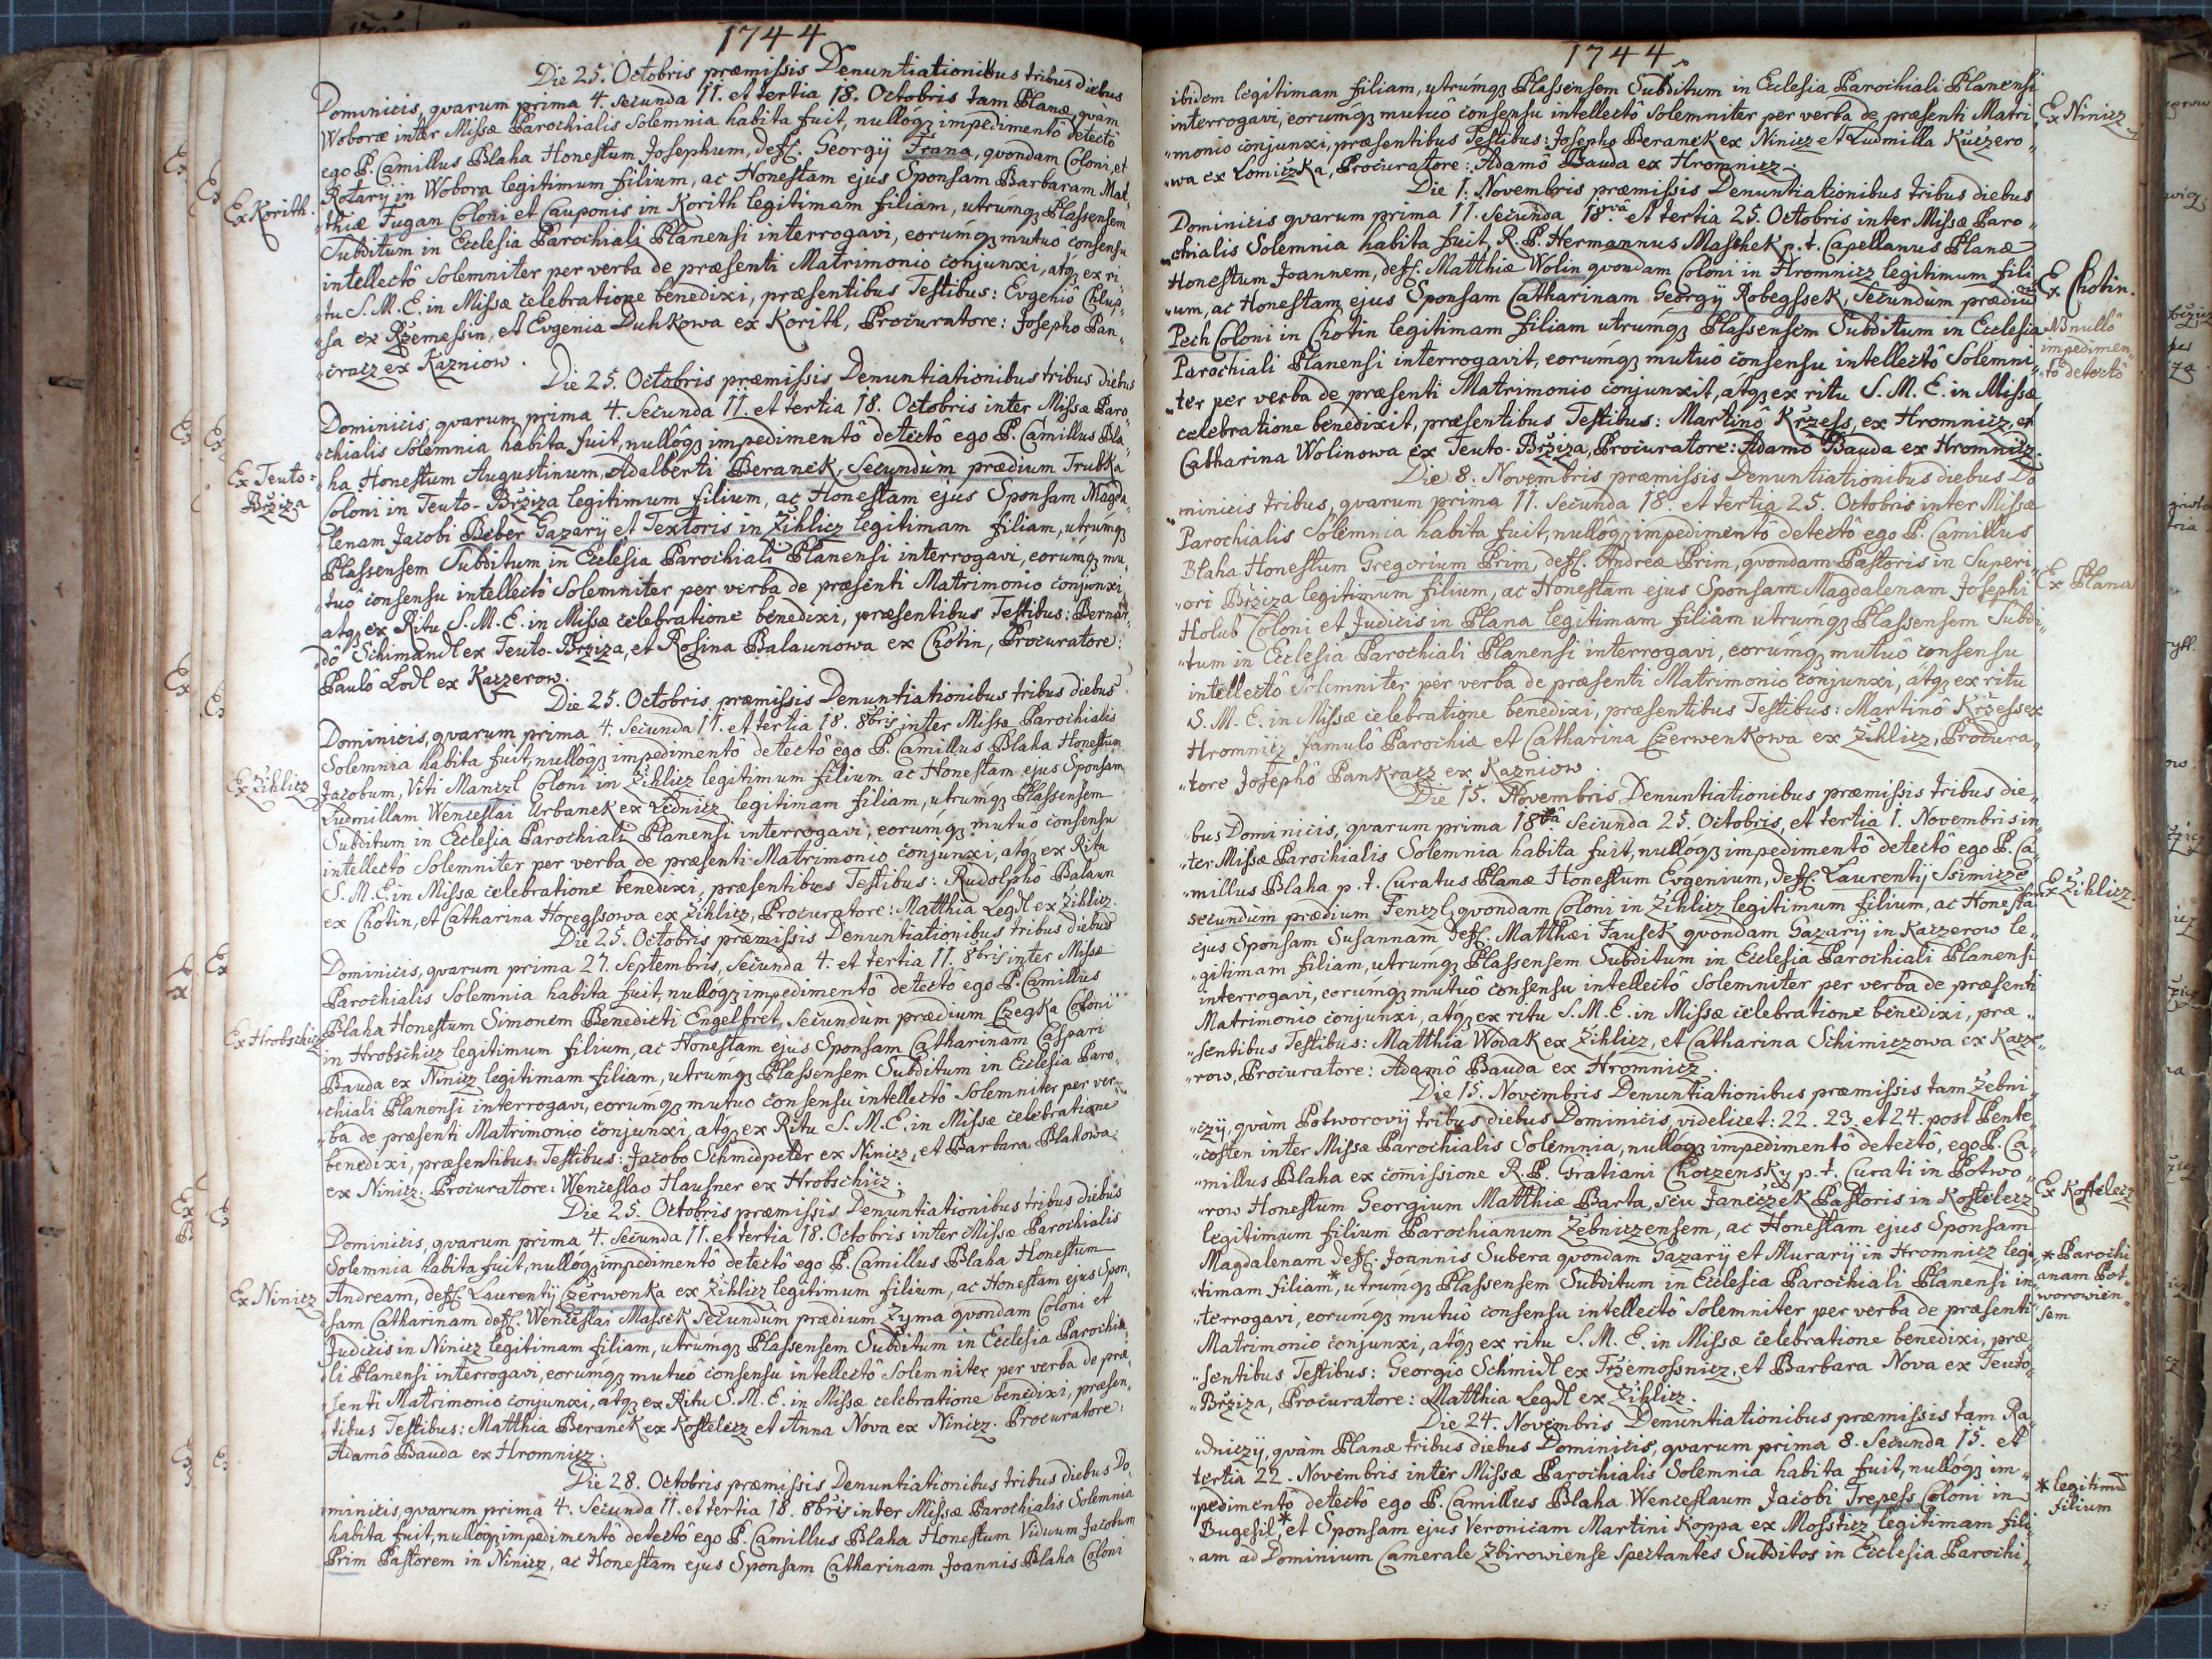 1744
Die 25. Octobris præmissis Denuntiationibus tribus diebus
Dominicis, qvarum prima 4. secunda 11. et tertia 18. Octobris tam Planæ, qvàm
Woboræ inter Missæ Parochialis Solemnia habita fuit, nullóq3 impedimentô detectô
ego P. Camillus Blaha Honestum Josephum, deff. Georgij Frana, qvondam Coloni, et
Rotarij in Wobora legitimum filium, ac Honestam ejus Sponsam Barbaram Mat„
Ex Korith.
„thiæ Fugan Coloni et Cauponis in Korith legitimam filiam, utrúmq3 Plassensem
Subditum in Ecclesia Parochiali Planensi interrogavi, eorúmq3 mutuô consensu
intellectô Solemniter per verba de præsenti Matrimonio conjunxi, atq3 ex ri„
„tu S. M. E. in Missæ celebratione benedixi, præsentibus Testibus: Evgeniô Chlup„
„sa ex Rzemessin, et Evgenia Duhkowa ex Korith, Procuratore: Josepho Pan„
„cracz ex Kazniow.
Die 25. Octobris præmissis Denuntiationibus tribus diebus
Dominicis, qvarum prima 4. Secunda 11. et tertia 18. Octobris inter Missæ Paro„
„chialis Solemnia habita fuit, nullôq3 impedimentô detectô ego P. Camillus Bla„
„ha Honestum Augustinum, Adalberti Beranek, Secundùm prædium Trubka
Ex Teuto=
Bržiza
Coloni in Teuto-Bržiza legitimum filium, ac Honestam ejus Sponsam Magda„
„lenam Jacobi Beber Gazarij et Textoris in Žihlicz legitimam filiam, utrumq3
Plassensem Subditum in Ecclesia Parochiali Planensi interrogavi, eorúmq3 mu„
„tuô consensu intellectô Solemniter per verba de præsenti Matrimonio conjunxi,
atq3 ex Ritu S. M. E. in Missæ celebratione benedixi, præsentibus Testibus: Bernar„
„dô Schimandl ex Teuto-Brziza, et Rosina Balaunowa ex Chotin, Procuratore:
Paulô Lodl ex Kaczerow.
Die 25. Octobris præmissis Denuntiationibus tribus diebus
Dominicis, qvarum prima 4. Secunda 11. et tertia 18. 8bris inter Missæ Parochialis
Solemnia habita fuit, nullôq3 impedimentô detectô ego P. Camillus Blaha Honestum
Ex Žihlicz
Jacobum, Viti Manczl Coloni in Žihlicz legitimum filium ac Honestam ejus Sponsam
Ludmillam Wenceslai Urbanek ex Lednicz legitimam filiam, utrumq3 Plassensem
Subditum in Ecclesia Parochiali Planensi interrogavi, eorúmq3 mutuô consensu
intellectô Solemniter per verba de præsenti Matrimonio conjunxi, atq3 ex Ritu
S. M. E. in Missæ celebratione benedixi, præsentibus Testibus: Rudolphô Balaun
ex Chotin, et Catharina Horegssowa ex Žihlicz, Procuratore: Matthia Legdl ex Žihlicz.
Die 25. Octobris præmissis Denuntiationibus tribus diebus
Dominicis, qvarum prima 27. Septembris, Secunda 4. et tertia 11. 8bris inter Missæ
Parochialis Solemnia habita fuit, nullóq3 impedimentô detectô ego P. Camillus
Ex Hrobschicz
Blaha Honestum Simonem Benedicti Engelfret, Secundùm prædium Czegka Coloni
in Hrobschicz legitimum filium, ac Honestam ejus Sponsam Catharinam Caspari
Bauda ex Ninicz legitimam filiam, utrúmq3 Plassensem Subditum in Ecclesia Paro„
„chiali Planensi interrogavi, eorúmq3 mutuo consensu intellectô Solemniter per ver„
„ba de præsenti Matrimonio conjunxi, atq3 ex Ritu S. M. E. in Missæ celebratione
benedixi, præsentibus Testibus: Jacobo Schmidpeter ex Ninicz, et Barbara Blahowa
ex Ninicz. Procuratore: Wenceslao Hausner ex Hrobschicz.
Die 25. Octobris præmissis Denuntiationibus tribus diebus
Dominicis, qvarum prima 4. Secunda 11. et tertia 18. Octobris inter Missæ Parochialis
Solemnia habita fuit, nullóq3 impedimentô detectô ego P. Camillus Blaha Honestum
Ex Ninicz
Andream, deff. Laurentij Czerwenka ex Žihlicz legitimum filium, ac Honestam ejus Spon„
„sam Catharinam deff. Wenceslai Massek Secundum prædium Zyma qvondam Coloni et
Judicis in Ninicz legitimam filiam, utrúmq3 Plassensem Subditum in Ecclesia Parochia„
„li Planensi interrogavi, eorúmq3 mutuô consensu intellectô Solemniter per verba de præ„
„senti Matrimonio conjunxi, atq3 ex Ritu S. M. E. in Missæ celebratione benedixi, præsen„
„tibus Testibus: Matthia Beranek ex Kostelecz et Anna Nova ex Ninicz. Procuratore:
Adamô Bauda ex Hromnicz.
Die 28. Octobris præmissis Denuntiationibus tribus diebus Do„
„minicis, qvarum prima 4. Secunda 11. et tertia 18. 8bris inter Missæ Parochialis Solemnia
habita fuit, nullôq3 impedimentô detectô ego P. Camillus Blaha Honestum Viduum Jacobum
Prim Pastorem in Ninicz, ac Honestam ejus Sponsam Catharinam Joannis Blaha Coloni
1744
ibidem legitimam filiam, utrúmq3 Plassensem Subditum in Ecclesia Parochiali Planensi
Ex Ninicz
interrogavi, eorúmq3 mutuô consensu intellectô Solemniter per verba de præsenti Matri„
„monio conjunxi, præsentibus Testibus: Josepho Beranek ex Ninicz et Ludmilla Kuczero„
„wa ex Lomiczka, Procuratore: Adamô Bauda ex Hromnicz.
Die 1. Novembris præmissis Denuntiationibus tribus diebus
Dominicis qvarum prima 11. Secunda 18vâ et tertia 25. Octobris inter Missæ Paro„
„chialis Solemnia habita fuit, R. P. Hermannus Maschek p. t. Capellanus Planæ
Honestum Joannem, deff. Matthiæ Wolin qvondam Coloni in Hromnicz legitimum fili
Ex Chotin.
„um, ac Honestam ejus Sponsam Catharinam Georgij Robegssek, Secundùm prædiu
Pech Coloni in Chotin legitimam filiam utrúmq3 Plassensem Subditum in Ecclesia
NB nullô
impedimen„
„tô detectô
Parochiali Planensi interrogavit, eorúmq3 mutuô consensu intellectô Solemni„
„ter per verba de præsenti Matrimonio conjunxit, atq3 ex ritu S. M. E. in Missæ
celebratione benedixit, præsentibus Testibus: Martinô Kržess, ex Hromnicz, et
Catharina Wolinowa ex Teuto-Bržiza, Procuratore: Adamô Bauda ex Hromnicz.
Die 8. Novembris præmissis Denuntiationibus diebus Do
„minicis tribus, qvarum prima 11. Secunda 18. et tertia 25. Octobris inter Missæ
Parochialis Solemnia habita fuit, nullôq3 impedimentô detectô ego P. Camillus
Blaha Honestum Gregorium Prim, deff. Andreæ Prim, qvondam Pastoris in Superi„
Ex Plana
„ori Bržiza legitimum filium, ac Honestam ejus Sponsam Magdalenam Josephi
Holub Coloni et Judicis in Plana legitimam filiam utrúmq3 Plassensem Subdi„
„tum in Ecclesia Parochiali Planensi interrogavi, eorúmq3 mutuô consensu
intellectô Solemniter per verba de præsenti Matrimonio conjunxi, átq3 ex ritu
S. M. E. in Missæ celebratione benedixi, præsentibus Testibus: Martinô Kržess ex
Hromnicz famulô Parochiæ et Catharina Czerwenkowa ex Žihlicz, Procura„
„tore Josephô Pankracz ex Kazniow.
Die 15. Novembris Denuntiationibus præmissis tribus die„
„bus Dominicis, qvarum prima 18vâ Secunda 25. Octobris, et tertia 1. Novembris in„
„ter Missæ Parochialis Solemnia habita fuit, nullóq3 impedimentô detectô ego P. Ca„
„millus Blaha p. t. Curatus Planæ Honestum Evgenium, deff. Laurentij Ssimicze
Ex Žihlicz.
secundùm prædium Fenczl, qvondam Coloni in Žihlicz legitimum filium, ac Honesta
ejus Sponsam Susannam deff. Matthæi Fausek qvondam Gazarij in Kaczerow le„
„gitimam filiam, utrúmq3 Plassensem Subditum in Ecclesia Parochiali Planensi
interrogavi, eorúmq3 mutuô consensu intellectô Solemniter per verba de præsenti
Matrimonio conjunxi, atq3 ex ritu S. M. E. in Missæ celebratione benedixi, præ„
„sentibus Testibus: Matthia Wodak ex Žihlicz, et Catharina Schimiczowa ex Kacze„
„row, Procuratore: Adamô Bauda ex Hromnicz.
Die 15. Novembris Denuntiationibus præmissis tam Žebni„
„czij, qvàm Potworovij tribus diebus Dominicis, videlicet: 22. 23. et 24. post Pente„
„costen inter Missæ Parochialis Solemnia, nullóq3 impedimentô detectô, ego P. Ca„
„millus Blaha ex comissione R. P. Gratiani Choczensky p. t. Curati in Potwo„
Ex Kostelecz
„row Honestum Georgium Matthiæ Barta, seu Janeczek Pastoris in Kostelecz
legitimum filium Parochianum Žebniczensem, ac Honestam ejus Sponsam
Magdalenam deff. Joannis Subera qvondam Gazarij et Murarij in Hromnicz legi„
* Parochi
anam Pot„
worowien„
sem
„timam filiam*, utrúmq3 Plassensem Subditum in Ecclesia Parochiali Planensi in„
„terrogavi, eorúmq3 mutuô consensu intellectô Solemniter per verba de præsenti
Matrimonio conjunxi, atq3 ex ritu S. M. E. in Missæ celebratione benedixi, præ„
„sentibus Testibus: Georgio Schmidl ex Tržemossnicz, et Barbara Nova ex Teuto„
„Bržiza, Procuratore: Matthia Legdl ex Žihlicz.
Die 24. Novembris Denuntiationibus præmissis tam Ra„
„dniczij, qvàm Planæ tribus diebus Dominicis, qvarum prima 8. Secunda 15. et
tertia 22. Novembris inter Missæ Parochialis Solemnia habita fuit, nullóq3 im„
* legitimu
filium
„pedimentô detectô ego P. Camillus Blaha Wenceslaum Jacobi Trepess Coloni in
Bugesil,* et Sponsam ejus Veronicam Martini Koppa ex Mossticz legitimam fili„
„am ad Dominium Camerale Zbirowiense Spectantes Subditos in Ecclesia Parochi„